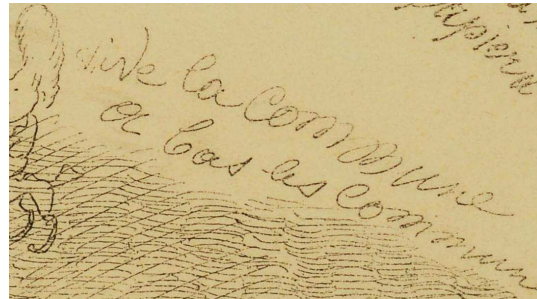 vive la commune
a bas les commun